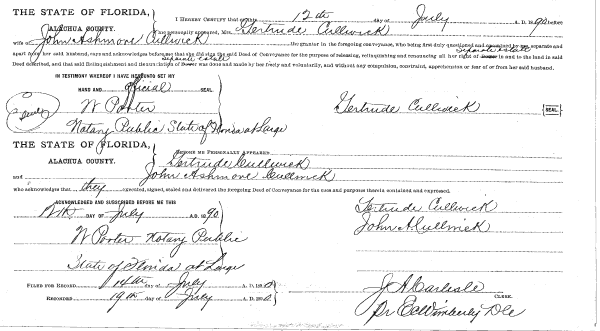 THE STATE OF FLORIDA,
ALACHUA COUNTY.
I HEREBY CERTIFY that on this 12th day of July A. D. 1890 before
me personally appeared, Mrs. Gertrude Cullwick
wife of John Ashmore Cullwick the grantor in the foregoing conveyance, who being first duly questioned and examined by me separate and
separate estate
apart from said husband, says and acknowledges before me that she did sign the said Deed of Conveyance for the purpose of releasing, relinquishing and renouncing all her right of dower in and to the land in said
separate estate
Deed described, and that said relinquishment and renunciation of dower was done and made by her freely and voluntarily, and without any compulsion, constraint, apprehension or fear of or from her said husband.
IN TESTIMONY WHEREOF I HAVE HEREUNTO SET MY
HAND AND official SEAL.
Seal
W Porter
Notary Public State of Florida at Large
Gertrude Cullwick SEAL
THE STATE OF FLORIDA,
ALACHUA COUNTY.
BEFORE ME PERSONALLY APPEARED
Gertrude Cullwick
and John Ashmore Cullwick
who acknowledges that they executed, signed, sealed and delivered the foregoing Deed of Conveyance for the uses and purposes therein contained and expressed.
ACKNOWLEDGED AND SUBSCRIBED BEFORE ME THIS
12th DAY OF July A. D. 1890
W Porter Notary Public
State of Florida at Large
Gertrude Cullwick
John A Cullwick
FILED FOR RECORD 14th day of July A. D. 1890
RECORDED 19th day of July A. D. 1890
J A Carlisle
CLERK.
Pr E A Wimberly D C